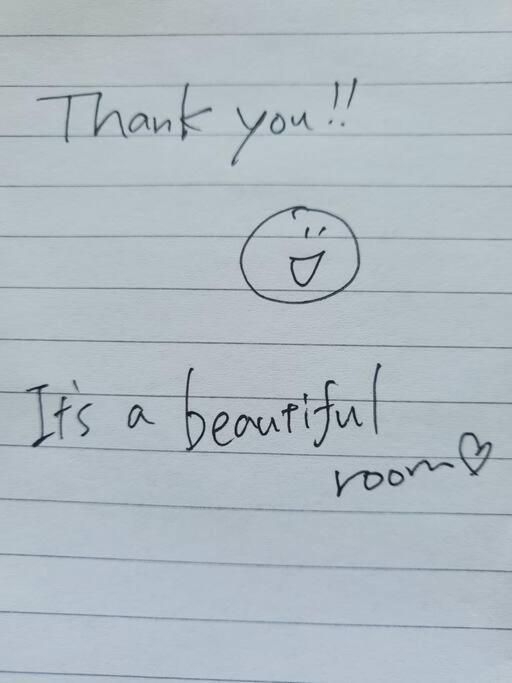 Thank you!!
It's a beautiful
room♡